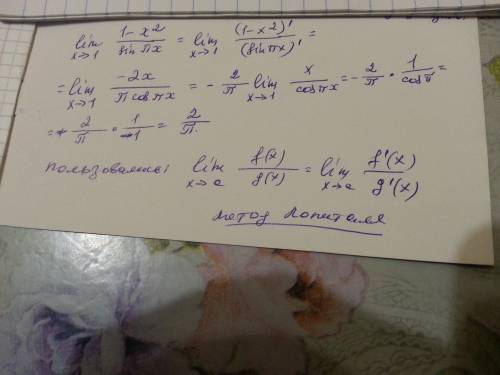 lim x→1 (1-x²)/(sin πx) = lim x→1 (1-x²)'/(sin πx)' =
= lim x→1 (-2x)/(π cos πx) = - 2/π lim x→1 x/(cos πx) = - 2/π · 1/(cos π) =
= 2/π · 1/1 = 2/π.
пользовались lim x→a f(x)/g(x) = lim x→a f'(x)/g'(x)
метод Лопиталя